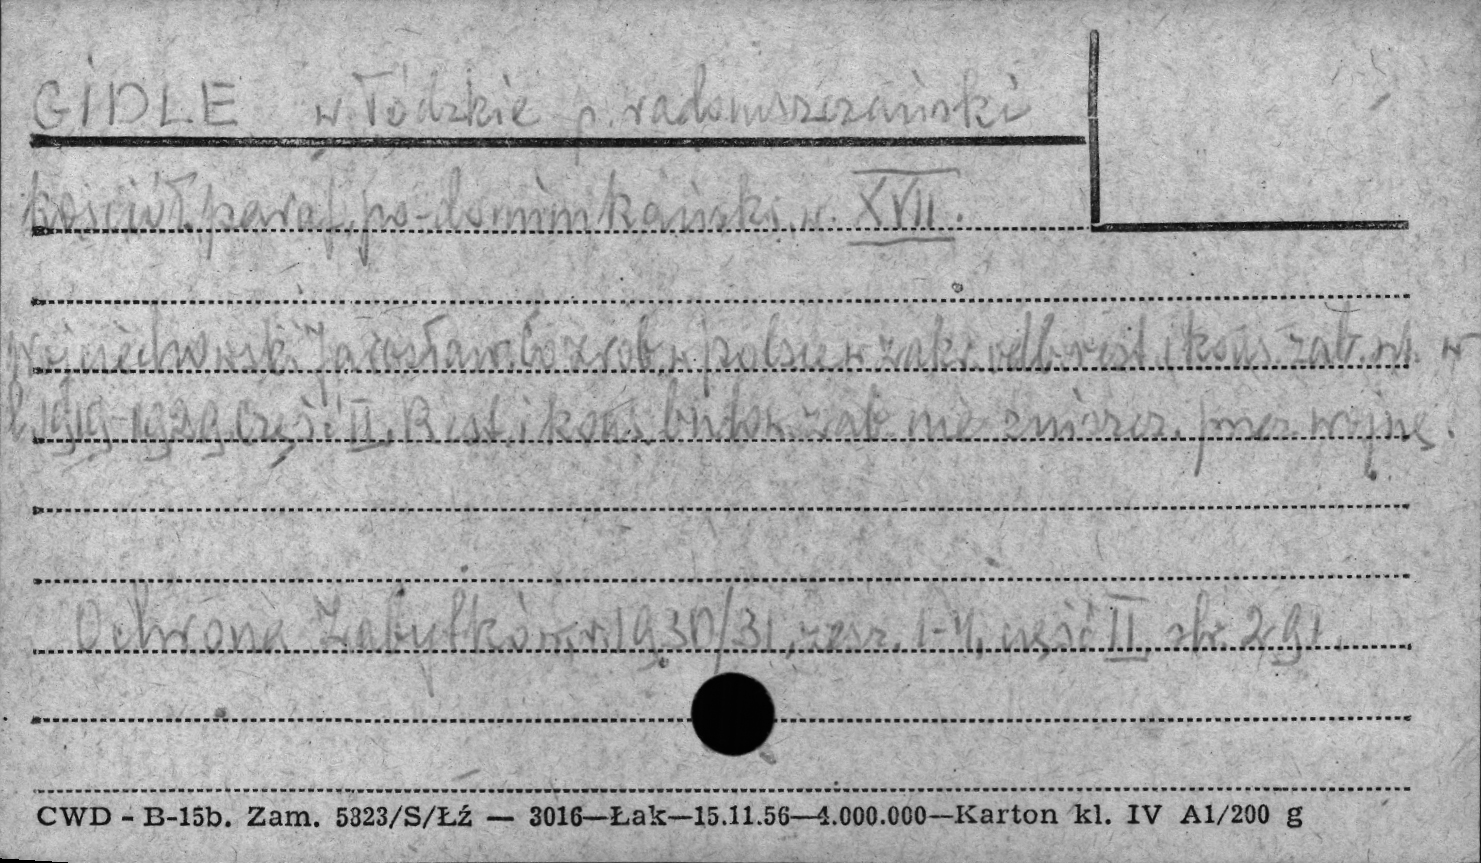 GIDLE w. łódzkie p. radomszczański
kościół paraf. po-dominikański, w. XVII.
Wojciechowski Jarosław. Co zrob. w polsce w zakr. odb. rest. i kons. zab. szt. w
l. 1919-1929. Część II. Rest. i kons. budow. zab. nie zniszcz. przez wojnę.
Ochrona Zabytków, r. 1930/31, zesz. 1-4, część II, str. 291.
CWD - B-15b. Zam. 5323/S/Łź — 3016—Łak—15.11.56—4.000.000—Karton kl. IV A1/200 g